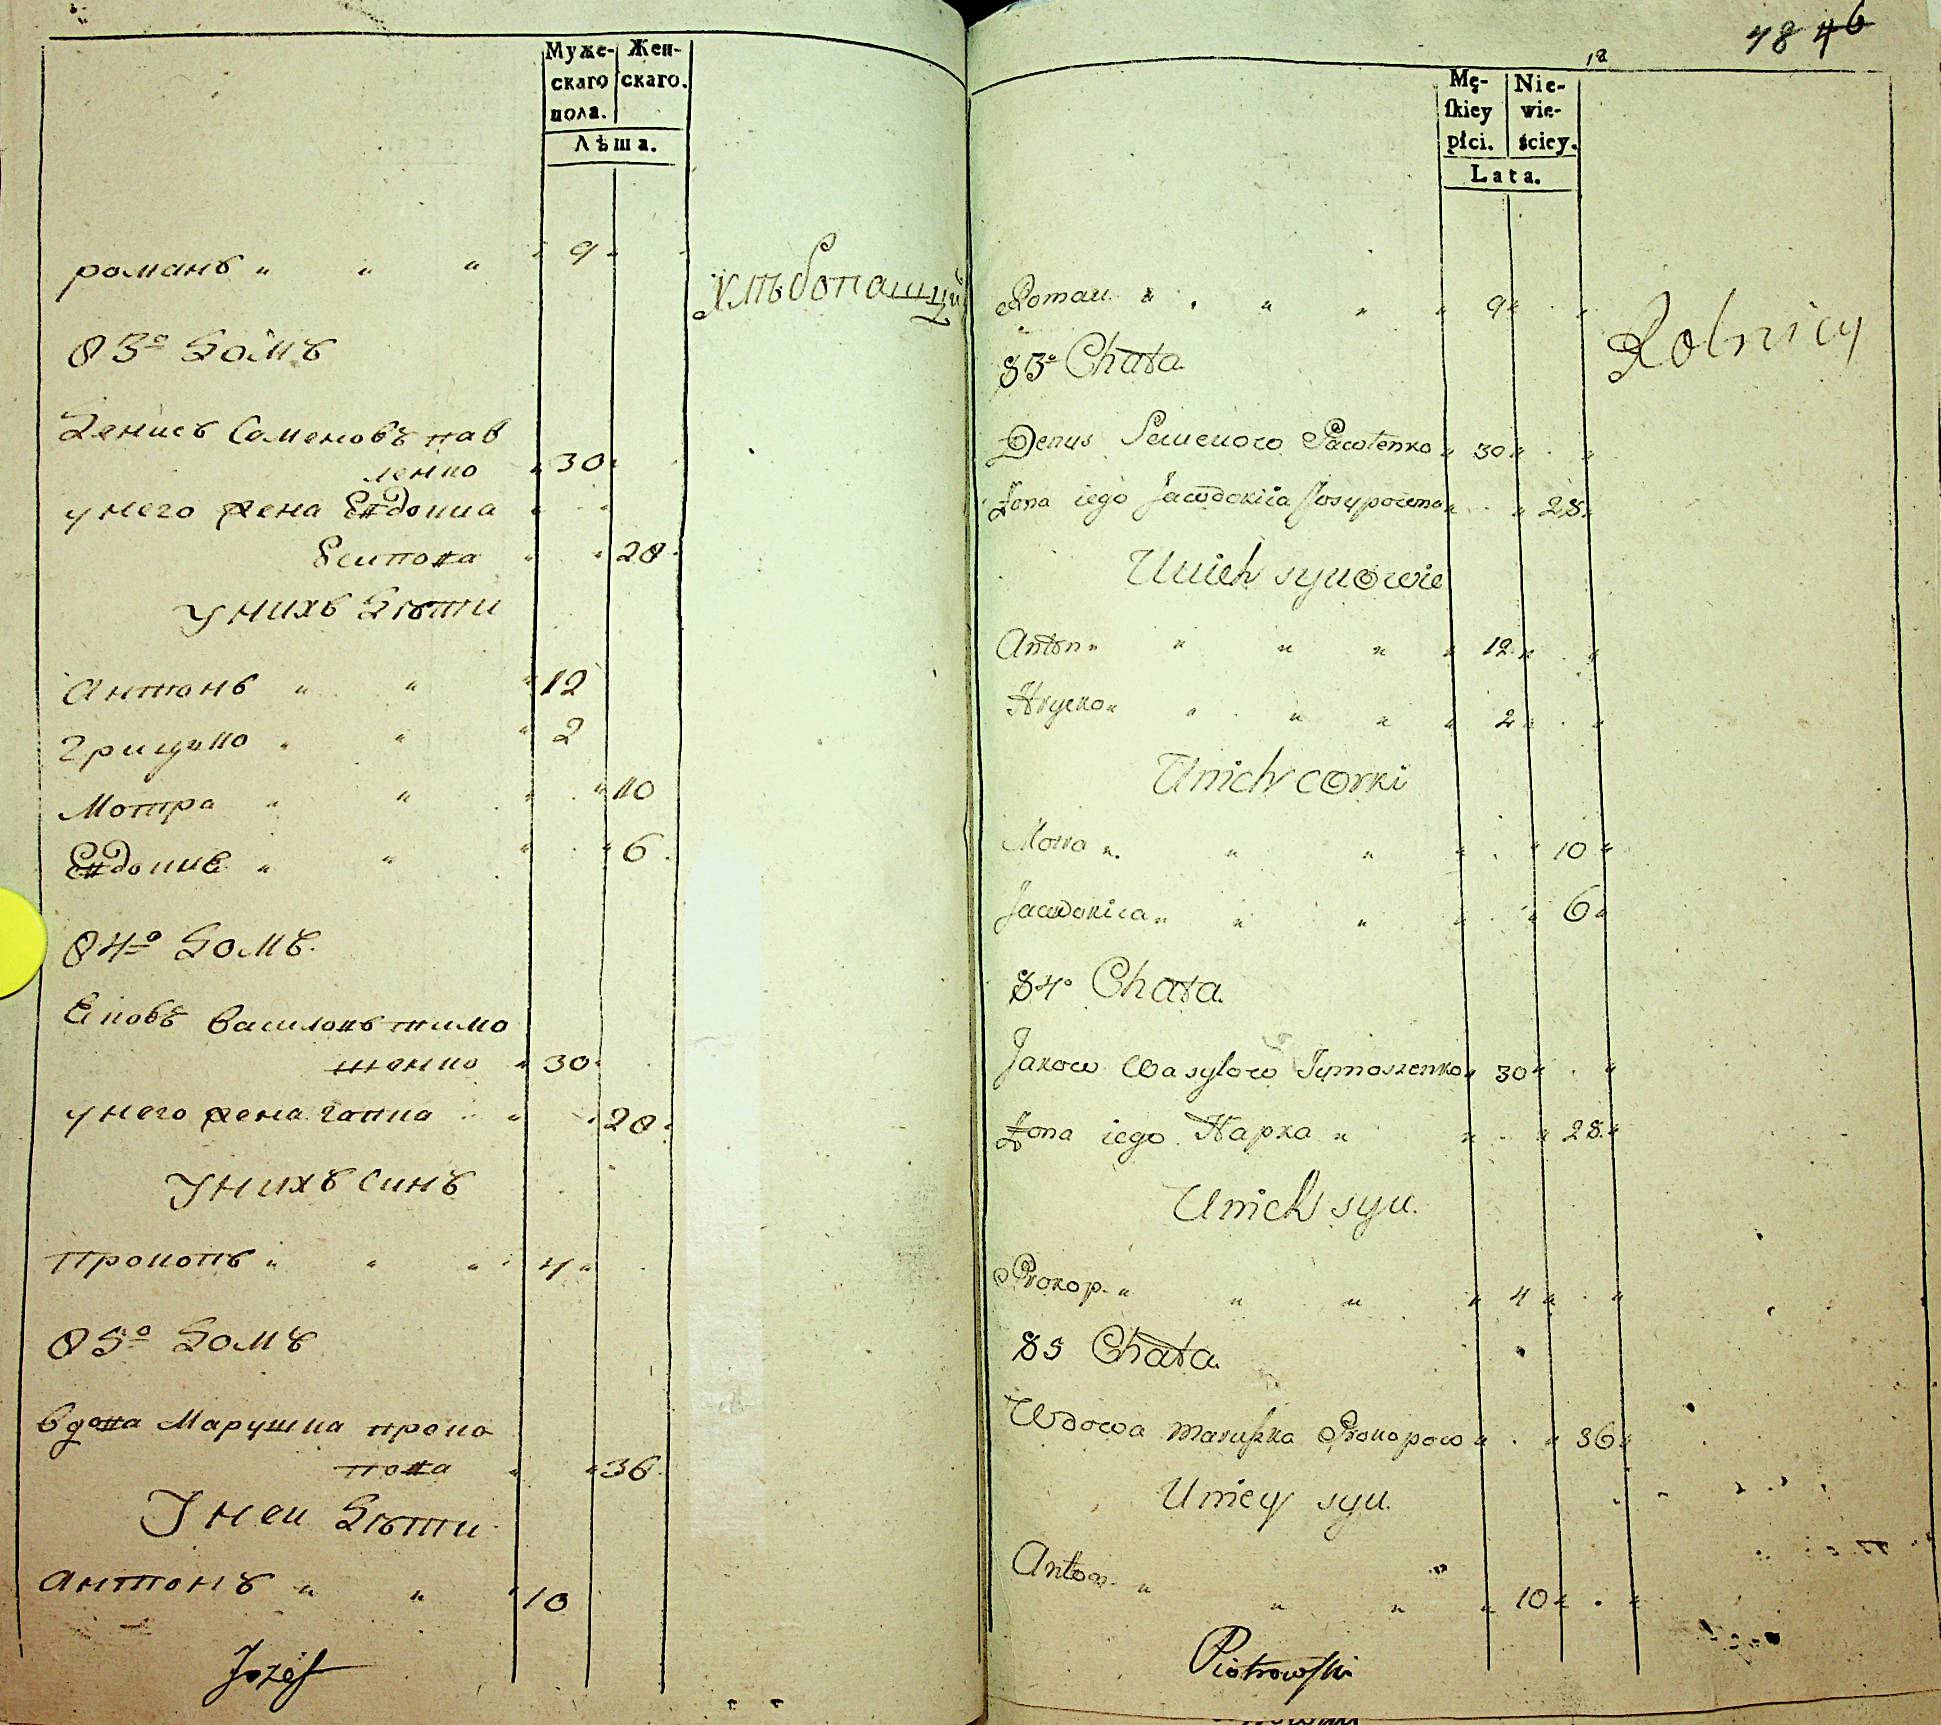 Муже-
скаго
пола.
Жен-
скаго.
Лѣта.
романъ „ „ „ 9
Хлѣбопашцы
83º домъ
Денисъ Семеновъ пав
ленко 30
у него жена Евдокиа
Есипова 28
у нихъ дѣти
антонъ „ „ 12
грицько „ „ 2
Мотра „ „ 10
Евдокиа „ „ 6
84º домъ.
Еков василовъ тимо
шенко 30
у него жена гапка 28
у нихъ синъ
прокопъ „ „ 4
85º домъ
вдова Марушка проко
пова 36
у неи дѣти
антонъ „ „ 10
Jozéf
48 46
Mę-
ſkiey
płci.
Nie-
wie-
ściey.
Lata.
Roman „ „ „ 9
Rolnicy
83º Chata.
Denys Semenow Pawlenko 30
Żona iego Jawdokiia Josypowna 28
Unich synowie
Anton „ „ „ 12
Hrycko „ „ „ 2
Unich corki
Motra „ „ „ 10
Jawdokiia „ „ „ 6
84º Chata.
Jakow Wasylow Tymoszenko 30
Żona iego Hapka „ 28
Unich syn.
Prokop „ „ „ 4
85 Chata.
Wdowa Maruſzka Prokopow 36
Uniey syn.
Anton „ „ „ 10
Piotrowſki